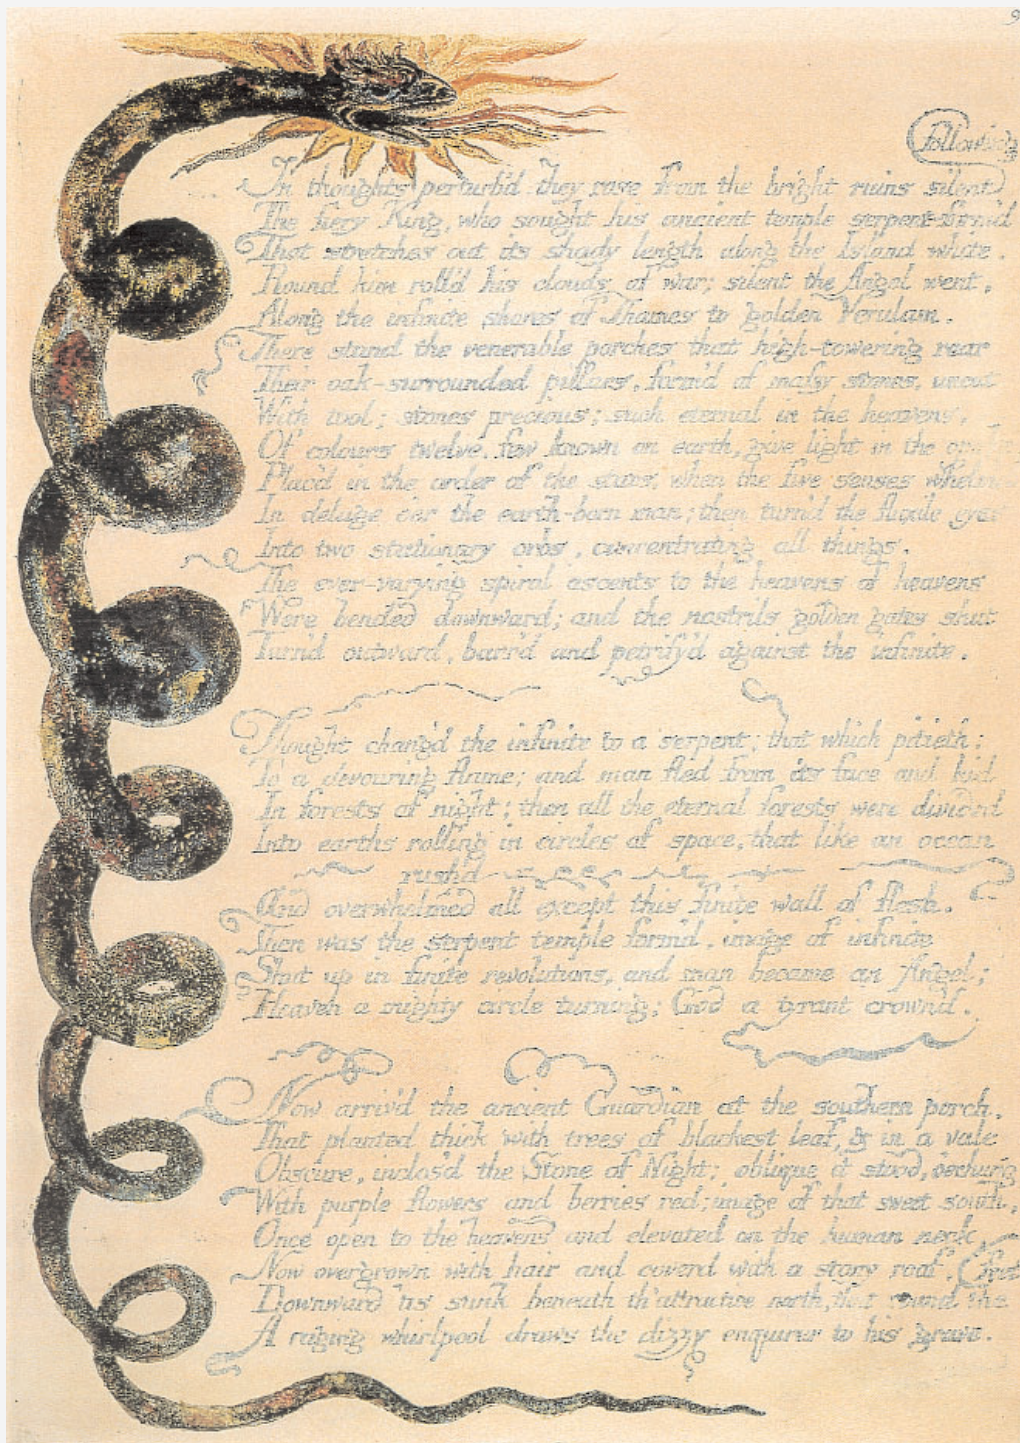 9
Following
In thoughts perturb'd they rose from the bright ruins silent
The fiery King, who sought his ancient temple serpent-form'd
That stretches out its shady length along the Island white.
Round him roll'd his clouds of war; silent the Angel went,
Along the infinite shores of Thames to golden Verulam.
There stand the venerable porches that high-towering rear
Their oak-surrounded pillars, form'd of massy stones, uncut
With tool; stones precious; such eternal in the heavens,
Of colours twelve, few known on earth, give light in the
Plac'd in the order of the stars, when the five senses whelm'd
In deluge o'er the earth-born man; then turn'd the fluxile eyes
Into two stationary orbs, concentrating all things.
The ever-varying spiral ascents to the heavens of heavens
Were bended downward; and the nostrils golden gates shut
Turn'd outward, barr'd and petrify'd against the infinite.
Thought chang'd the infinite to a serpent; that which pitieth:
To a devouring flame; and man fled from its face and hid
In forests of night; then all the eternal forests were divided
Into earths rolling in circles of space, that like an ocean
rush'd
And overwhelmed all except this finite wall of flesh.
Then was the serpent temple form'd, image of infinite
Shut up in finite revolutions, and man became an Angel;
Heaven a mighty circle turning; God a tyrant crown'd.
Now arriv'd the ancient Guardian at the southern porch,
That planted thick with trees of blackest leaf, & in a vale
Obscure, inclos'd the Stone of Night; oblique it stood, o'erhung
With purple flowers and berries red; image of that sweet south,
Once open to the heavens and elevated on the human neck,
Now overgrown with hair and coverd with a stony roof, (feet
Downward 'tis sunk beneath th' attractive north, that round the
A raging whirlpool draws the dizzy enquirer to his grave.